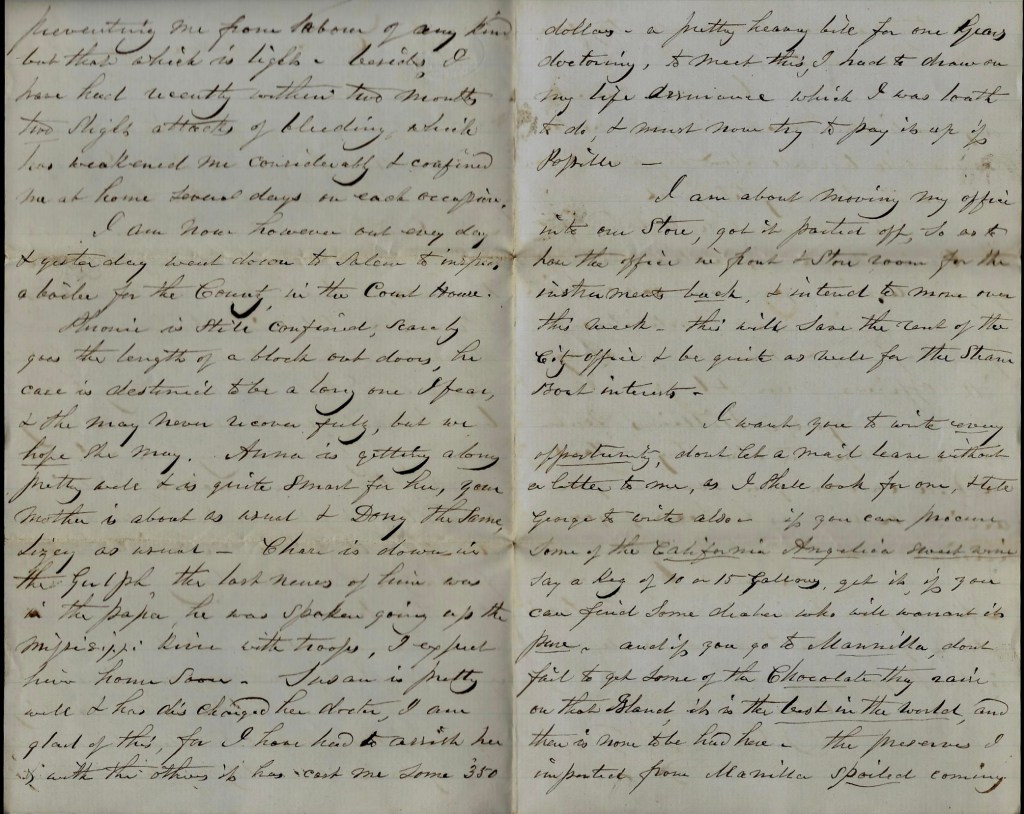 preventing me from labour of any kind
but that which is light - besides, I
have had recently within two months
two slight attacks of bleeding, which
has weakened me considerably & confined
me at home several days on each occasion.
I am now however out every day
& yesterday went down to Salem to inspect
a boiler for the County, in the Court House.
is still confined, scarcely
goes the length of a block out doors, her
case is destined to be a long one I fear,
& she may never recover fully, but we
hope she may. Anna is getting along
pretty well & is quite smart for her, your
mother is about as usual & Dony the same,
Lizey as usual - Chas is down in
the Gulph the last news of him was
in the papa, he was spoken going up the
Missisippi River with troops, I expect
him home soon - Susan is pretty
well & has discharged her doctor, I am
glad of this, for I have had to assist her
& with the others it has cost me some 350
dollars - a pretty heavy bill for one years
doctoring, to meet this, I had to draw on
my life insurance which I was loath
to do, & must now try to pay it up if
Possible -
I am about moving my office
into our Store, got it parted off, so as to
have the office in front & Store room for the
instruments back, & intend to move over
this week - this will save the rent of the
City office & be quite as well for the Steam
Boat interests -
I want you to write every
opportunity, dont let a mail leave without
a letter to me, as I shall look for one, & tell
George to write also - if you can procure
some of the California Angelica sweet wine
say a Keg of 10 or 15 Gallons, get it, if you
can find some dealer who will warrant it
pure - and if you go to Mannilla, dont
fail to get some of the Chocolate they raise
on that Island, it is the best in the world, and
there is none to be had here - the preserves I
imported from Manilla spoiled coming